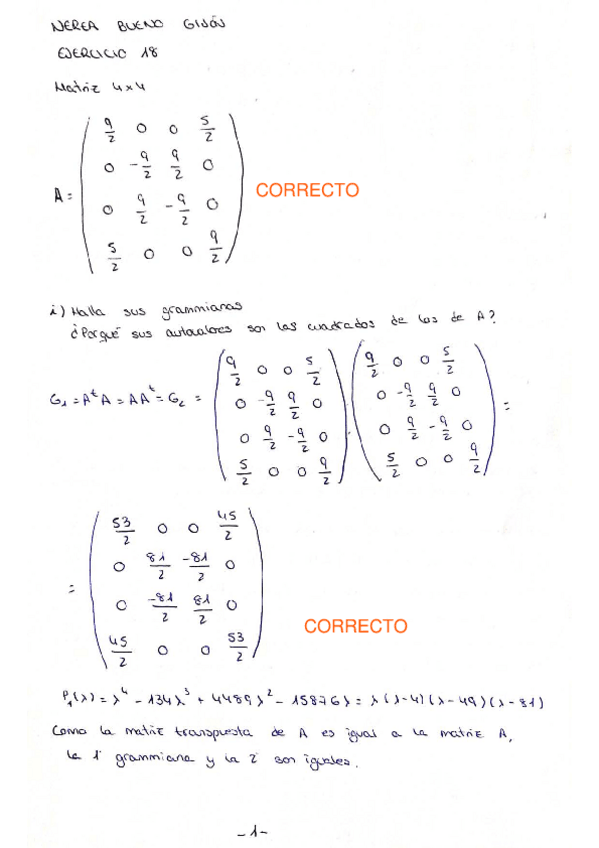 NEREA BUENO GIJÓN
EJERCICIO 18
Matriz 4x4
A = ( 9/2 0 0 5/2
0 -9/2 9/2 0
0 9/2 -9/2 0
5/2 0 0 9/2 )
CORRECTO
i) Halla sus grammianas
¿Porqué sus autovalores son los cuadrados de los de A?
G₁ = AᵗA = AAᵗ = G₂ = ( 9/2 0 0 5/2 ) ( 9/2 0 0 5/2 )
( 0 -9/2 9/2 0 ) ( 0 -9/2 9/2 0 )
( 0 9/2 -9/2 0 ) · ( 0 9/2 -9/2 0 ) =
( 5/2 0 0 9/2 ) ( 5/2 0 0 9/2 )
= ( 53/2 0 0 45/2
0 81/2 -81/2 0
0 -81/2 81/2 0
45/2 0 0 53/2 )
CORRECTO
P₁(λ) = λ⁴ - 134λ³ + 4489λ² - 15876λ = λ(λ-4)(λ-49)(λ-81)
Como la matriz transpuesta de A es igual a la matriz A,
la 1ª grammiana y la 2ª son iguales.
-1-